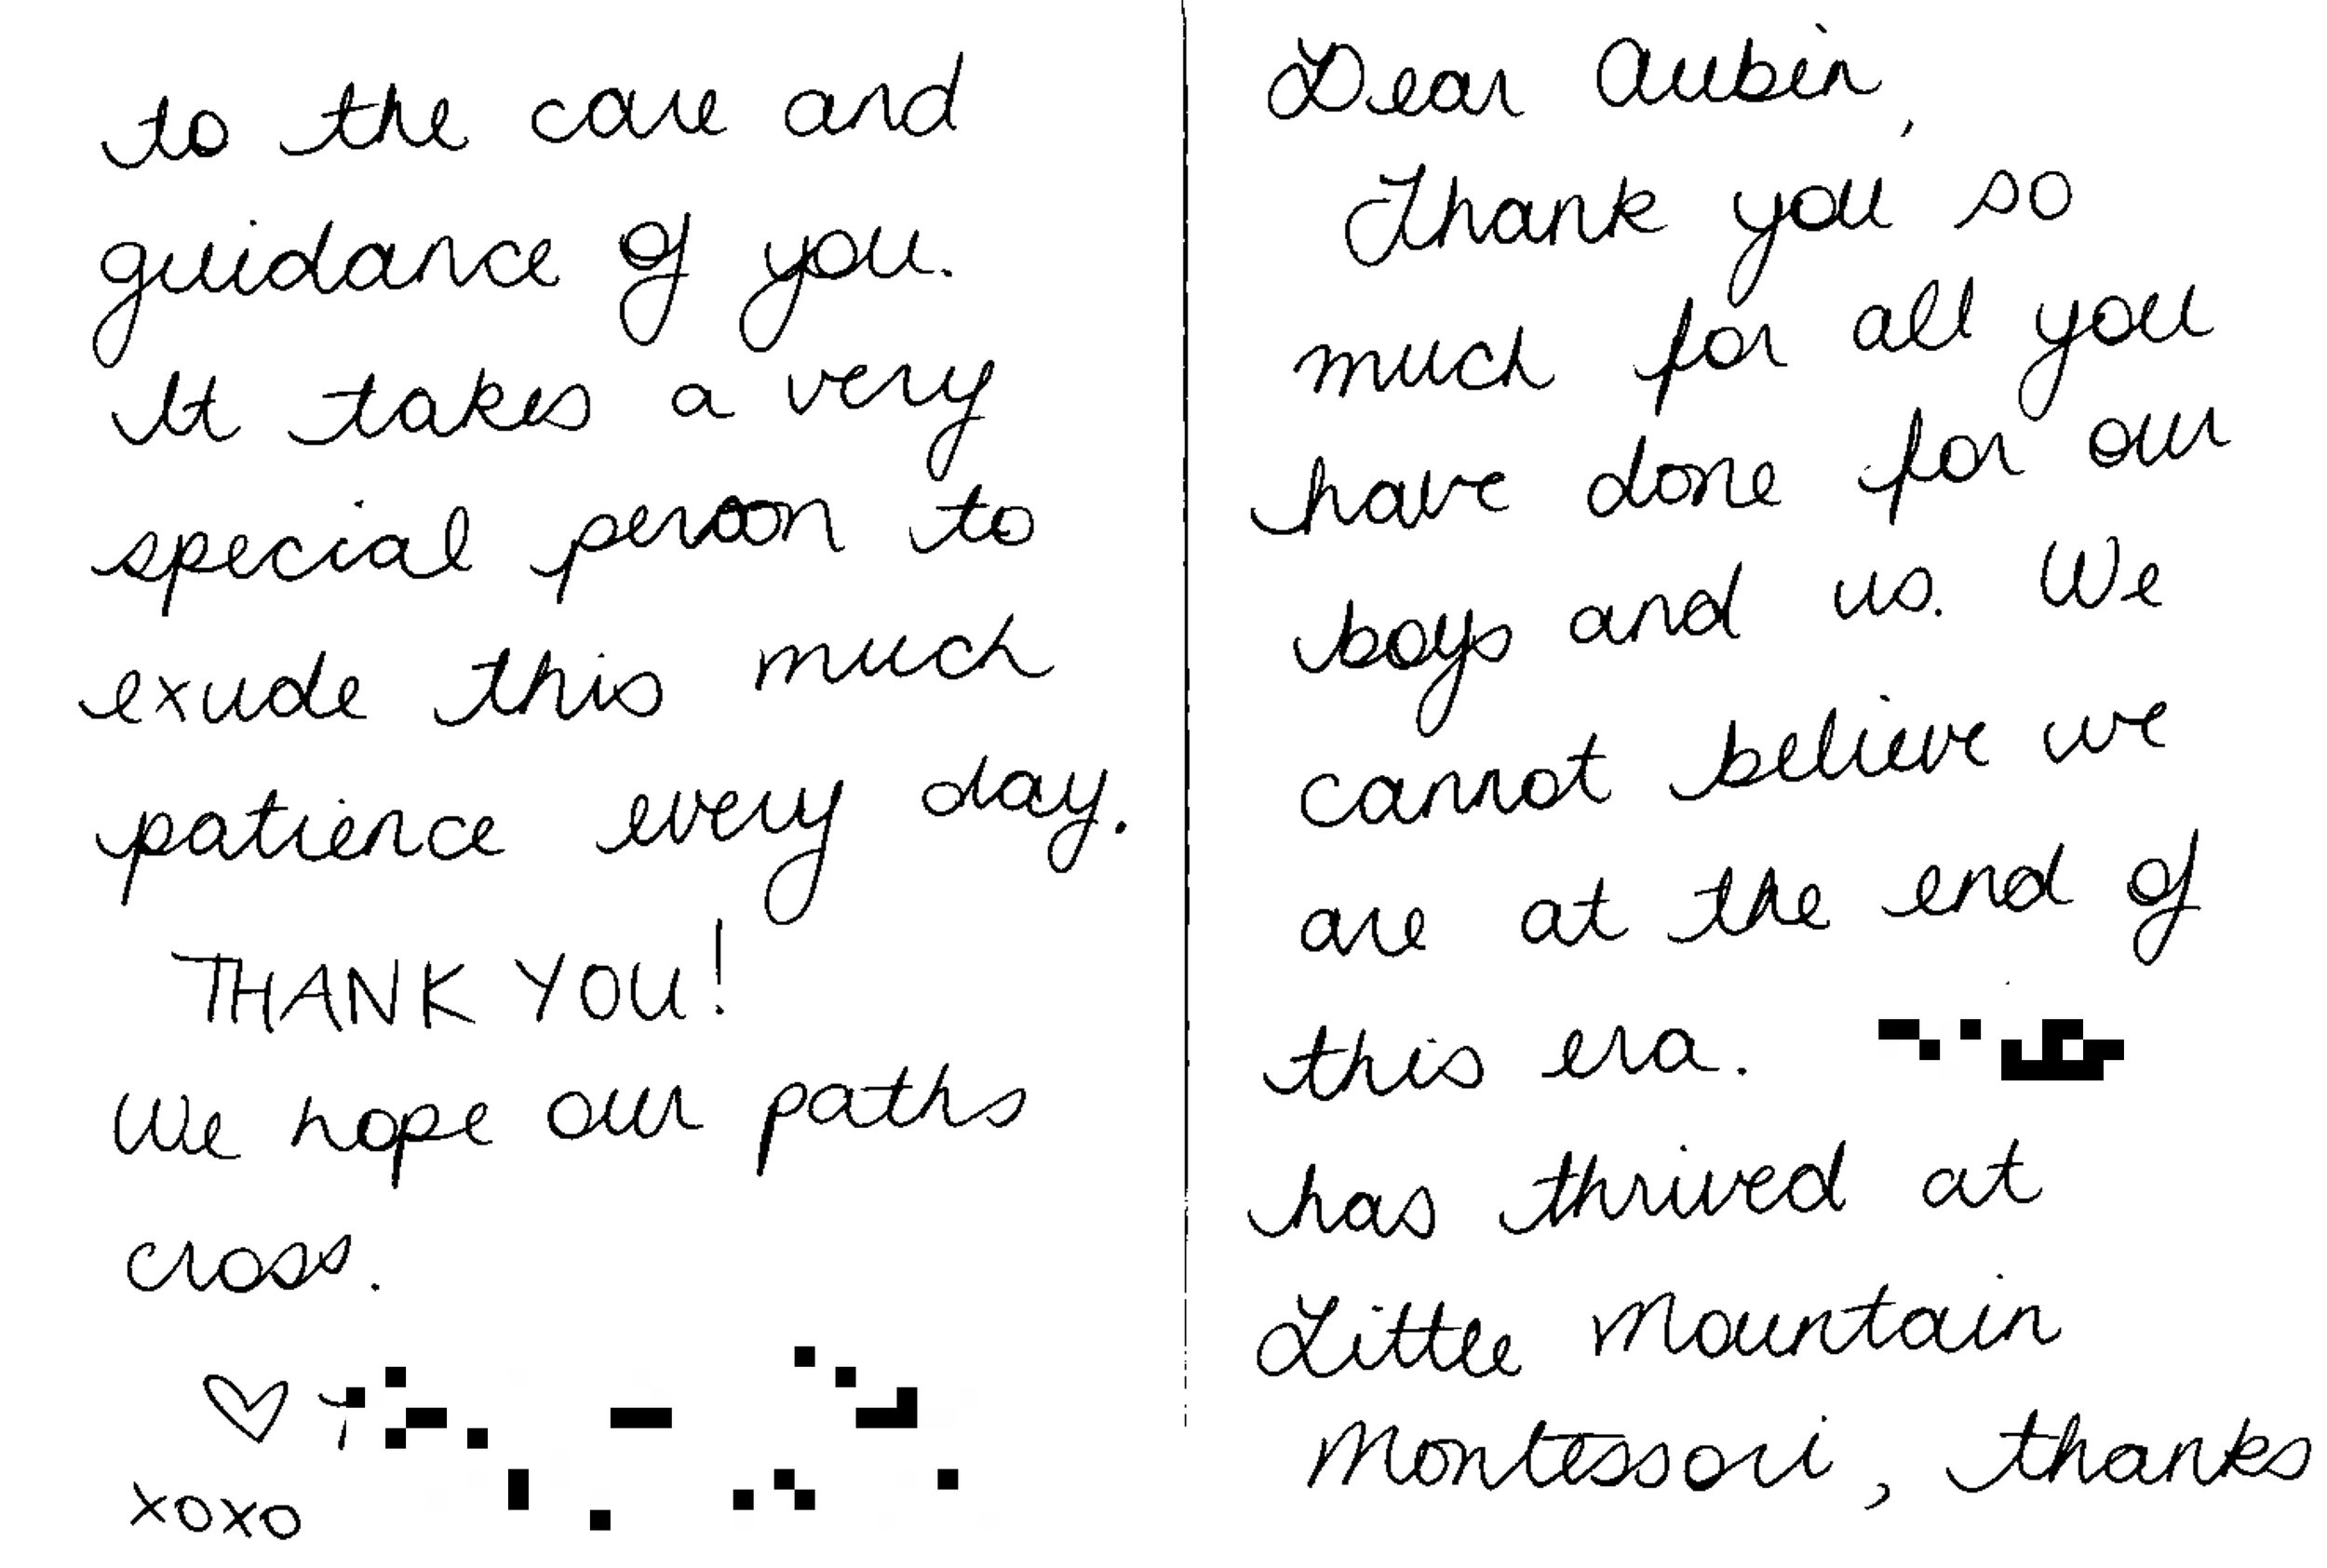 Dear Aubin,
Thank you so
much for all you
have done for our
boys and us. We
cannot believe we
are at the end of
this era.
has thrived at
Little Mountain
Montessori, thanks
to the care and
guidance of you.
It takes a very
special person to
exude this much
patience every day.
THANK YOU!
We hope our paths
cross.
♡
xoxo